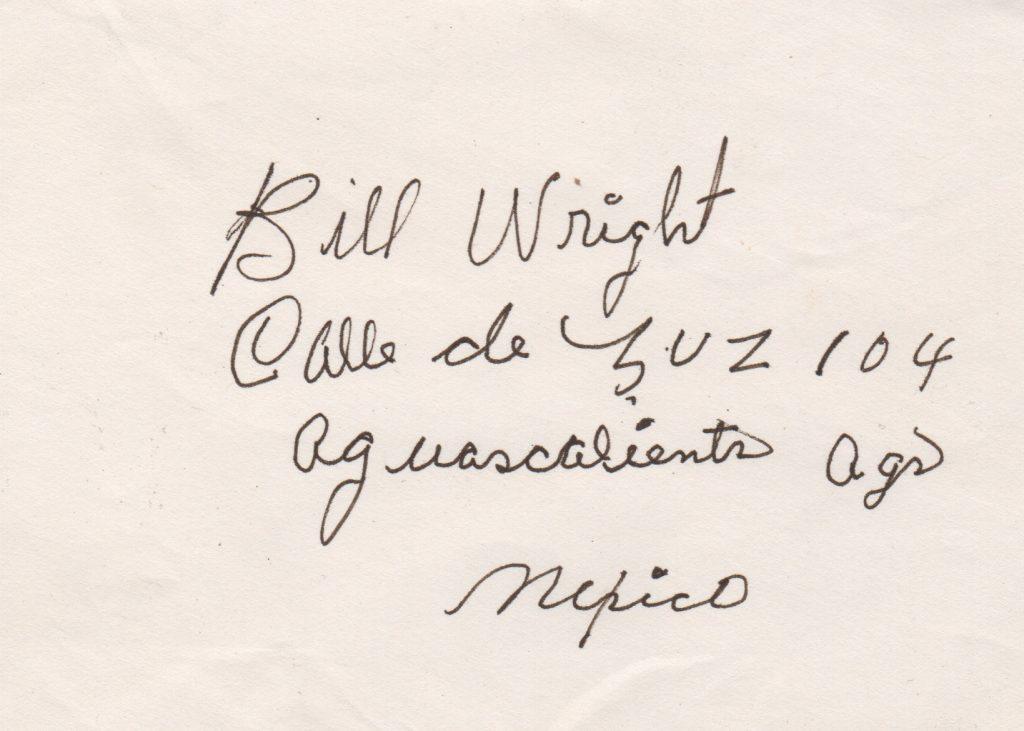 Bill Wright
Calle de Luz 104
Aguascalientes Ags
Mexico